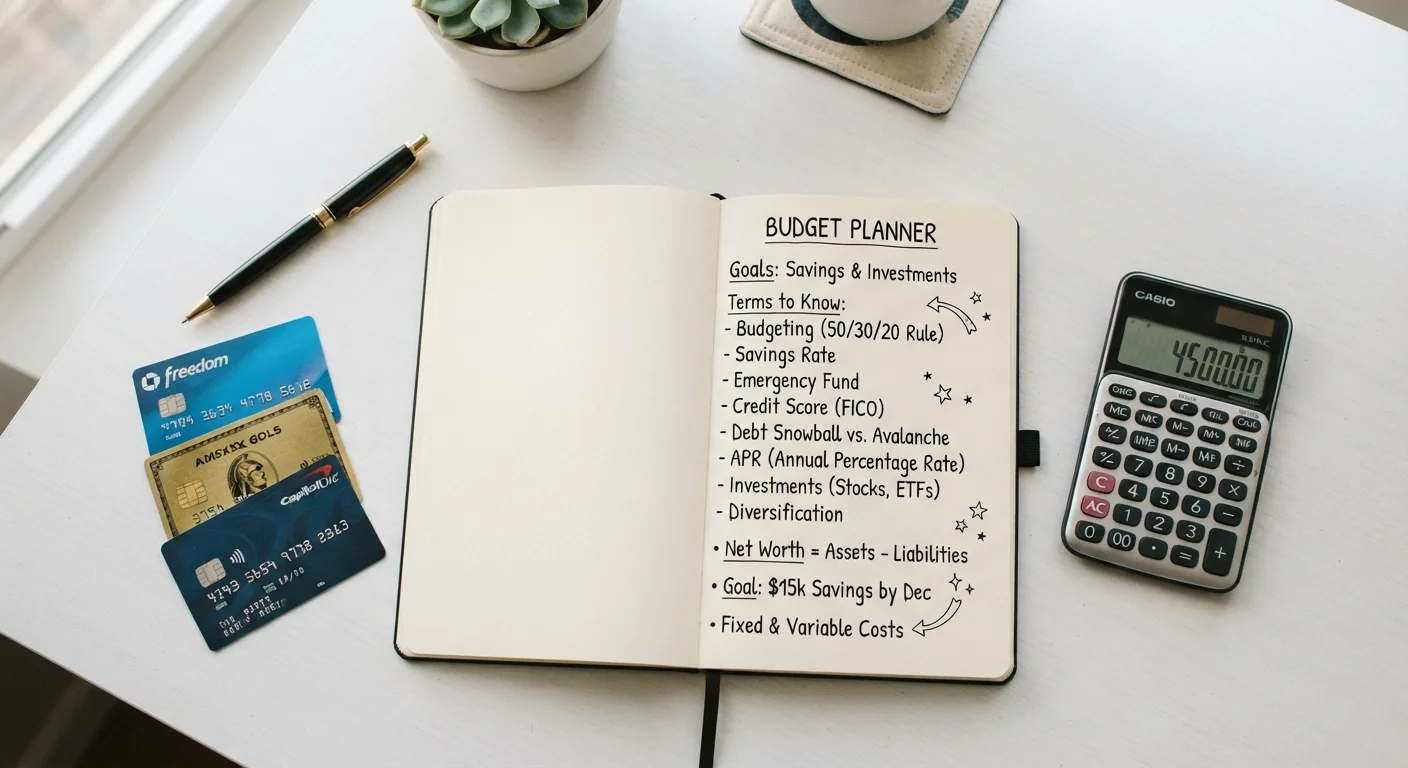 BUDGET PLANNER
Goals: Savings & Investments
Terms to Know:
- Budgeting (50/30/20 Rule)
- Savings Rate
- Emergency Fund
- Credit Score (FICO)
- Debt Snowball vs. Avalanche
- APR (Annual Percentage Rate)
- Investments (Stocks, ETFs)
- Diversification
• Net Worth = Assets – Liabilities
• Goal: $15k Savings by Dec
• Fixed & Variable Costs
freedom
AMSXXX GOLS
3754
CASIO
450000
MC
M-
7 8 9 ÷
C 4 5 6 ×
AC 1 2 3 −
0 00 • = +